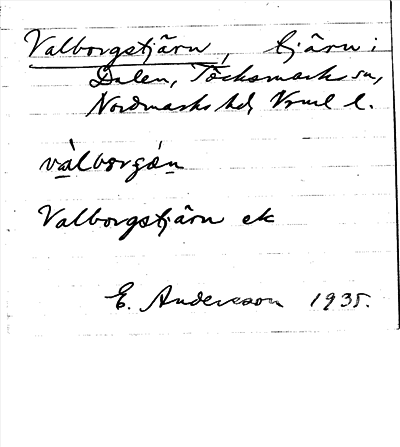 Valborgstjärn, tjärn i
Dalen, Töcksmarks sn,
Nordmarks hd, Vrml l.
vàlborgǿn
Valborgstjärn ek
E. Andersson 1935.